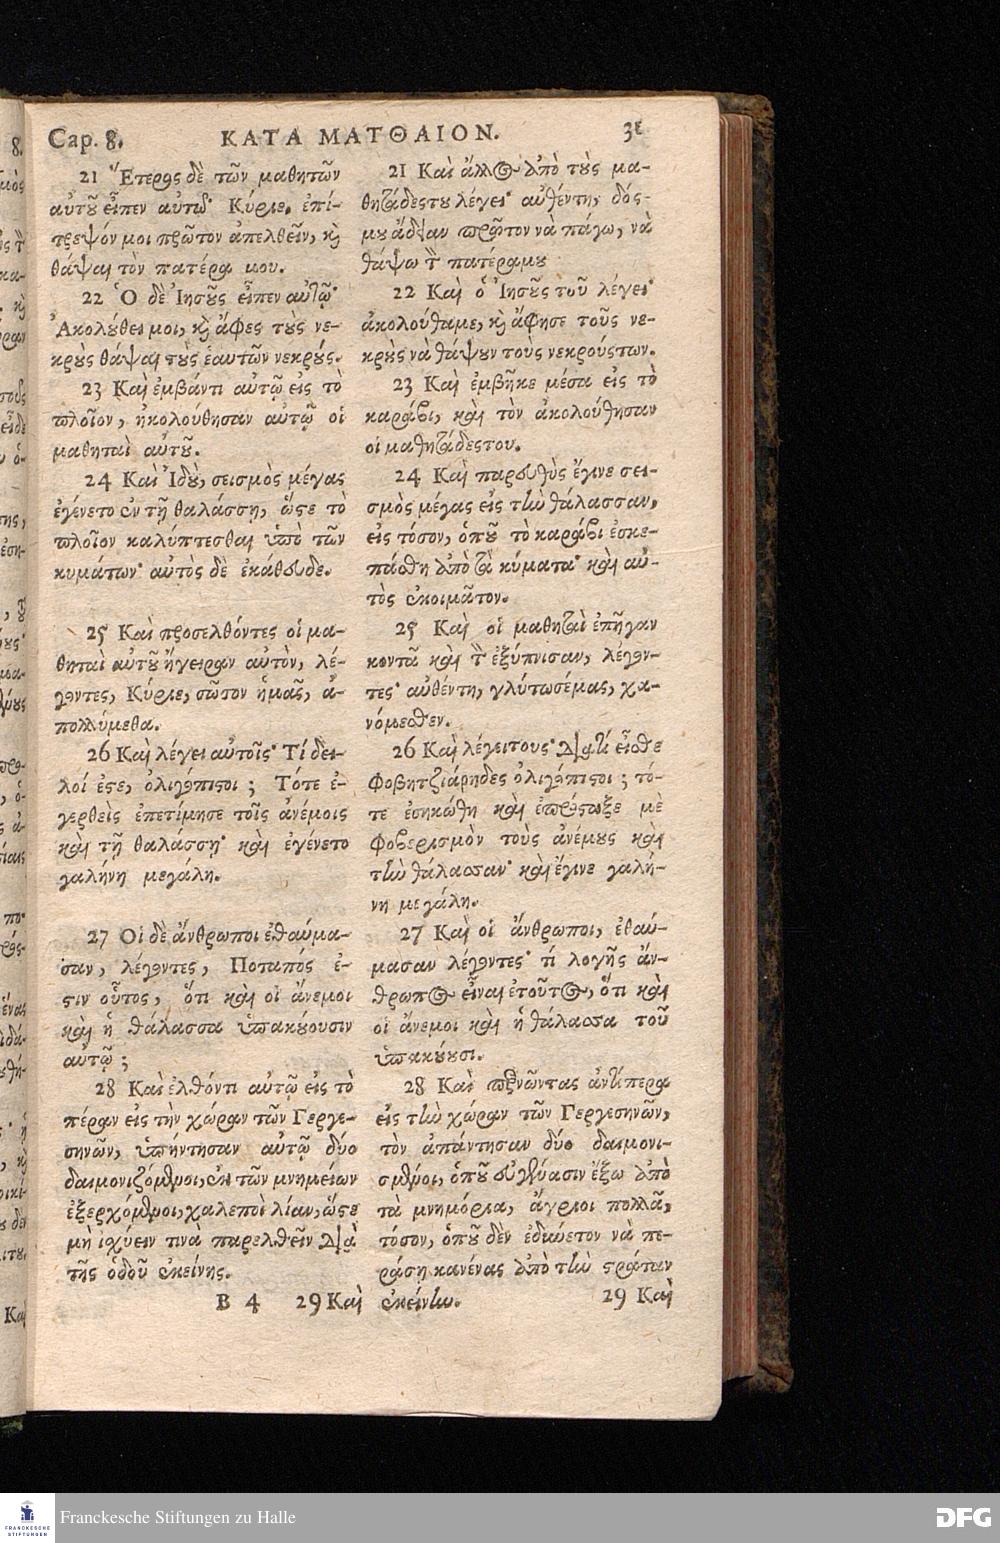 Cap. 8. ΚΑΤΑ ΜΑΤΘΑΙΟΝ.
21 Ἕτερος δὲ τῶν μαθητῶν
αὐτοῦ εἶπεν αὐτῷ· Κύριε, ἐπί-
τρεψόν μοι πρῶτον ἀπελθεῖν, καὶ
θάψαι τὸν πατέρα μου.
22 Ὁ δὲ Ἰησοῦς εἶπεν αὐτῷ·
Ἀκολούθει μοι, καὶ ἄφες τοὺς νε-
κροὺς θάψαι τοὺς ἑαυτῶν νεκρούς.
23 Καὶ ἐμβάντι αὐτῷ εἰς τὸ
πλοῖον, ἠκολούθησαν αὐτῷ οἱ
μαθηταὶ αὐτοῦ.
24 Καὶ Ἰδοὺ, σεισμὸς μέγας
ἐγένετο ἐν τῇ θαλάσσῃ, ὥστε τὸ
πλοῖον καλύπτεσθαι ὑπὸ τῶν
κυμάτων· αὐτὸς δὲ ἐκάθευδε.
25 Καὶ προσελθόντες οἱ μα-
θηταὶ αὐτοῦ ἤγειραν αὐτὸν, λέ-
γοντες, Κύριε, σῶσον ἡμᾶς, ἀ-
πολλύμεθα.
26 Καὶ λέγει αὐτοῖς· Τί δει-
λοί ἐστε, ὀλιγόπιστοι; Τότε ἐ-
γερθεὶς ἐπετίμησε τοῖς ἀνέμοις
καὶ τῇ θαλάσσῃ· καὶ ἐγένετο
γαλήνη μεγάλη.
27 Οἱ δὲ ἄνθρωποι ἐθαύμα-
σαν, λέγοντες, Ποταπός ἐ-
στιν οὗτος, ὅτι καὶ οἱ ἄνεμοι
καὶ ἡ θάλασσα ὑπακούουσιν
αὐτῷ;
28 Καὶ ἐλθόντι αὐτῷ εἰς τὸ
πέραν εἰς τὴν χώραν τῶν Γεργε-
σηνῶν, ὑπήντησαν αὐτῷ δύο
δαιμονιζόμενοι, ἐκ τῶν μνημείων
ἐξερχόμενοι, χαλεποὶ λίαν, ὥστε
μὴ ἰσχύειν τινὰ παρελθεῖν διὰ
τῆς ὁδοῦ ἐκείνης.
B 4 29 Καὶ
21 Καὶ ἄλλος ἀπὸ τοὺς μα-
θητάδεςτου λέγει· αὐθέντη, δός-
μου ἄδειαν πρῶτον νὰ πάγω, νὰ
θάψω τὸν πατέραμου
22 Καὶ ὁ Ἰησοῦς τοῦ λέγει·
ἀκολούθαμε, καὶ ἄφησε τοῦς νε-
κροὺς νὰ θάψουν τοὺς νεκρούςτων.
23 Καὶ ἐμβῆκε μέσα εἰς τὸ
καράβι, καὶ τὸν ἀκολούθησαν
οἱ μαθητάδεςτου.
24 Καὶ παρευθὺς ἔγινε σει-
σμὸς μέγας εἰς τὴν θάλασσαν,
εἰς τόσον, ὁποῦ τὸ καράβι ἐσκε-
πάσθη ἀπὸ τὰ κύματα· καὶ αὐ-
τὸς ἐκοιμᾶτον.
25 Καὶ οἱ μαθηταὶ ἐπῆγαν
κοντὰ καὶ τὸν ἐξύπνισαν, λέγον-
τες· αὐθέντη, γλύτωσέμας, χα-
νόμεσθεν.
26 Καὶ λέγειτους· Διατί εἶσθε
Φοβητζιάρηδες ὀλιγόπιστοι; τό-
τε ἐσηκώθη καὶ ἐπρόσταξε μὲ
Φοβερισμὸν τοὺς ἀνέμους καὶ
τὴν θάλασσαν· καὶ ἔγινε γαλή-
νη μεγάλη.
27 Καὶ οἱ ἄνθρωποι, ἐθαύ-
μασαν λέγοντες· τί λογῆς ἄν-
θρωπος εἶναι ἐτοῦτος, ὅτι καὶ
οἱ ἄνεμοι καὶ ἡ θάλασσα τοῦ
ὑπακούουσι.
28 Καὶ περνῶντας ἀντίπερα
εἰς τὴν χώραν τῶν Γεργεσηνῶν,
τὸν ἀπάντησαν δύο δαιμονι-
σμένοι, ὁποῦ εὐγένασιν ἔξω ἀπὸ
τὰ μνημόρια, ἄγριοι πολλὰ,
τόσον, ὁποῦ δὲν ἐδύνετον νὰ πε-
ράσῃ κανένας ἀπὸ τὴν στράταν
ἐκείνην. 29 Καὶ
Franckesche Stiftungen zu Halle
FRANCKESCHE
STIFTUNGEN
DFG